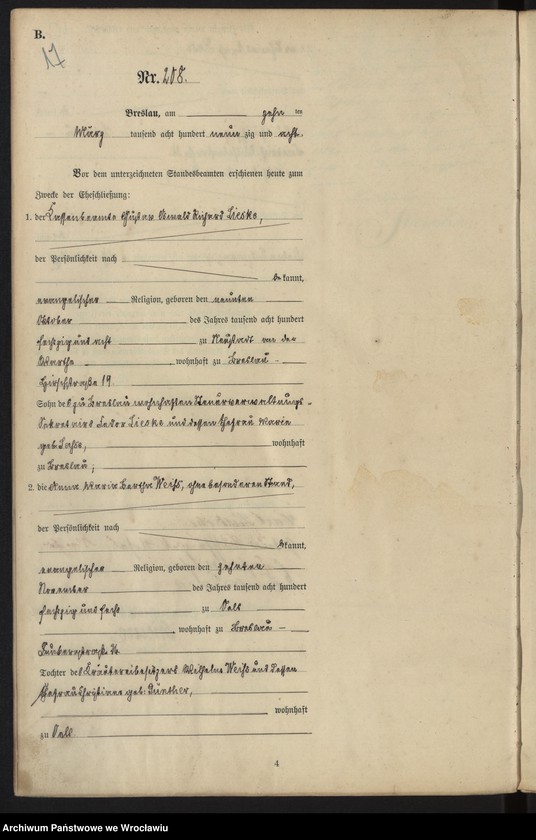 B.
17
Nr. 208.
Breslau, am zehn ten
März tausend acht hundert neunzig und acht.
Vor dem unterzeichneten Standesbeamten erschienen heute zum
Zwecke der Eheschließung:
1. der Kassenbeamte Gustav Oswald Richard Lieske,
der Persönlichkeit nach
be kannt,
evangelischer Religion, geboren den neunten
Oktober des Jahres tausend acht hundert
sechzig und acht zu Neustadt an der
Warthe, wohnhaft zu Breslau -
Hirschstraße 19
Sohn des zu Breslau wohnhaften Steuerverwaltungs-
Sekretairs Fedor Lieske und dessen Ehefrau Marie
geb. Sachse, wohnhaft
zu Breslau;
2. die Anna Maria Bertha Weihs, ohne besonderen Stand,
der Persönlichkeit nach
be kannt,
evangelischer Religion, geboren den zehnten
November des Jahres tausend acht hundert
sechzig und sechs zu Oels
, wohnhaft zu Breslau -
Tochter des Kräutereibesitzers Wilhelm Weihs und dessen
Ehefrau Christiane geb. Günther,
wohnhaft
zu Oels
4
Archiwum Państwowe we Wrocławiu